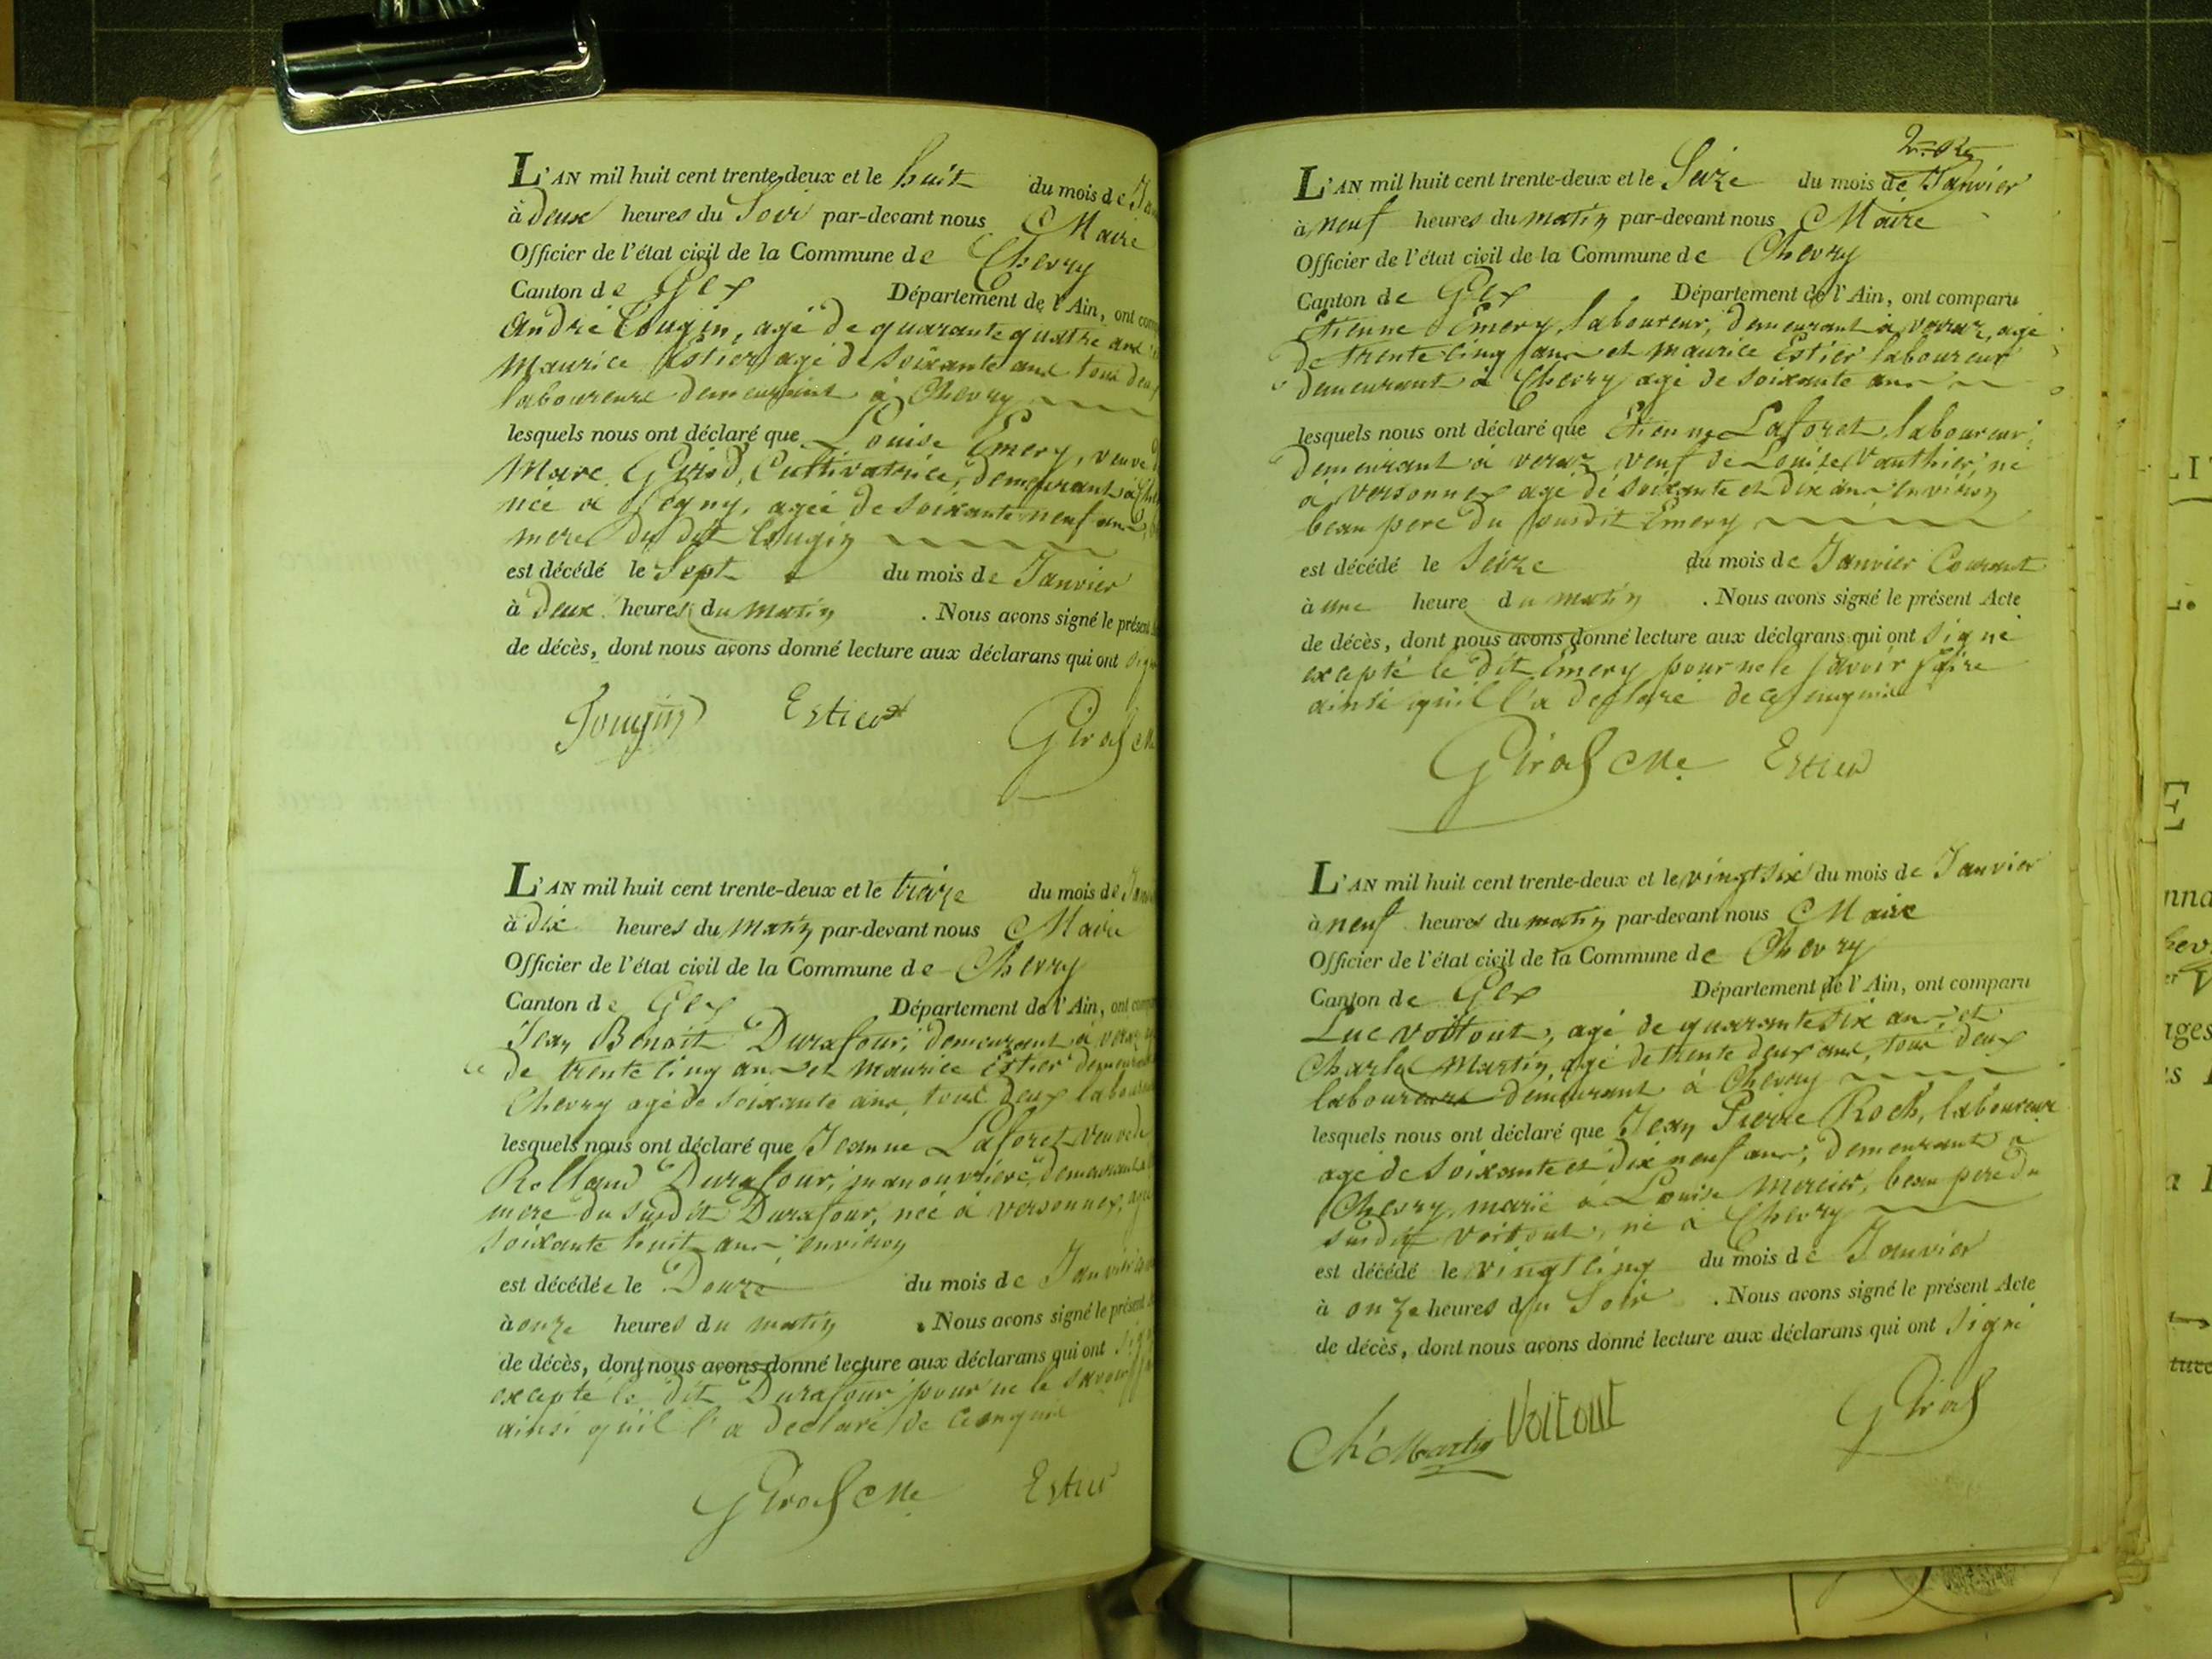 L'AN mil huit cent trente-deux et le huit du mois de
à deux heures du Soir par-devant nous Maire
Officier de l'état civil de la Commune de Chevry
Canton de Gex Département de l'Ain, ont
André Cougin, agé de quarante quatre ans
Maurice Estier agé de soixante ans tous deux
laboureurs demeurant à Chevry
lesquels nous ont déclaré que Louise Emery, veuve
Marc Girod, Cultivatrice, demeurant à
née à Segny, agée de soixante neuf ans,
mere du dit Cougin
est décédé le Sept du mois de Janvier
à Deux heures du matin . Nous avons signé le présent
de décès, dont nous avons donné lecture aux déclarans qui ont
Estier
Girod Me
L'AN mil huit cent trente-deux et le treize du mois de
à dix heures du matin par-devant nous Maire
Officier de l'état civil de la Commune de Chevry
Canton de Gex Département de l'Ain, ont
Jean Benoit Durafour, demeurant à veraz
de trente cinq ans et Maurice Estier
Chevry agé de soixante ans, tous deux
lesquels nous ont déclaré que Jeanne Laforet veuve de
Rolland Durafour, manouvriere, demeurant
mere du susdit Durafour, née à versonnex,
soixante huit ans environ
est décédée le Douze du mois de Janvier
à onze heures du matin . Nous avons signé le présent
de décès, dont nous avons donné lecture aux déclarans qui ont
excepté le dit Durafour pour ne le savoir
ainsi qu'il l'a déclaré de ce enquis
Girod Me Estier
L'AN mil huit cent trente-deux et le Seize du mois de Janvier
à neuf heures du matin par-devant nous Maire
Officier de l'état civil de la Commune de Chevry
Canton de Gex Département de l'Ain, ont comparu
Etienne Emery, laboureur, demeurant à veraz, agé
de trente cinq ans et maurice Estier laboureur
demeurant à Chevry agé de soixante ans
lesquels nous ont déclaré que Etienne Laforet, laboureur,
demeurant à veraz veuf de Louise Vauthier, né
à versonnex agé de soixante et dix ans environ
beau pere du susdit Emery
est décédé le Seize du mois de Janvier Courant
à une heure du matin . Nous avons signé le présent Acte
de décès, dont nous avons donné lecture aux déclarans qui ont signé
excepté le dit Emery pour ne le savoir faire
ainsi qu'il l'a déclaré de ce enquis
Girod Me Estier
L'AN mil huit cent trente-deux et le vingt six du mois de Janvier
à neuf heures du matin par-devant nous Maire
Officier de l'état civil de la Commune de Chevry
Canton de Gex Département de l'Ain, ont comparu
Luc voitout, agé de quarante six ans, et
Charles Martin, agé de trente deux ans, tous deux
laboureurs demeurant à Chevry
lesquels nous ont déclaré que Jean Pierre Roch, laboureur
agé de soixante et dix neuf ans, demeurant à
Chevry, marié à Louise Mercier, beau pere du
susdit voitout, né à Chevry
est décédé le vingt cinq du mois de Janvier
à onze heures du Soir . Nous avons signé le présent Acte
de décès, dont nous avons donné lecture aux déclarans qui ont signé
Ch Martin Voitout Girod